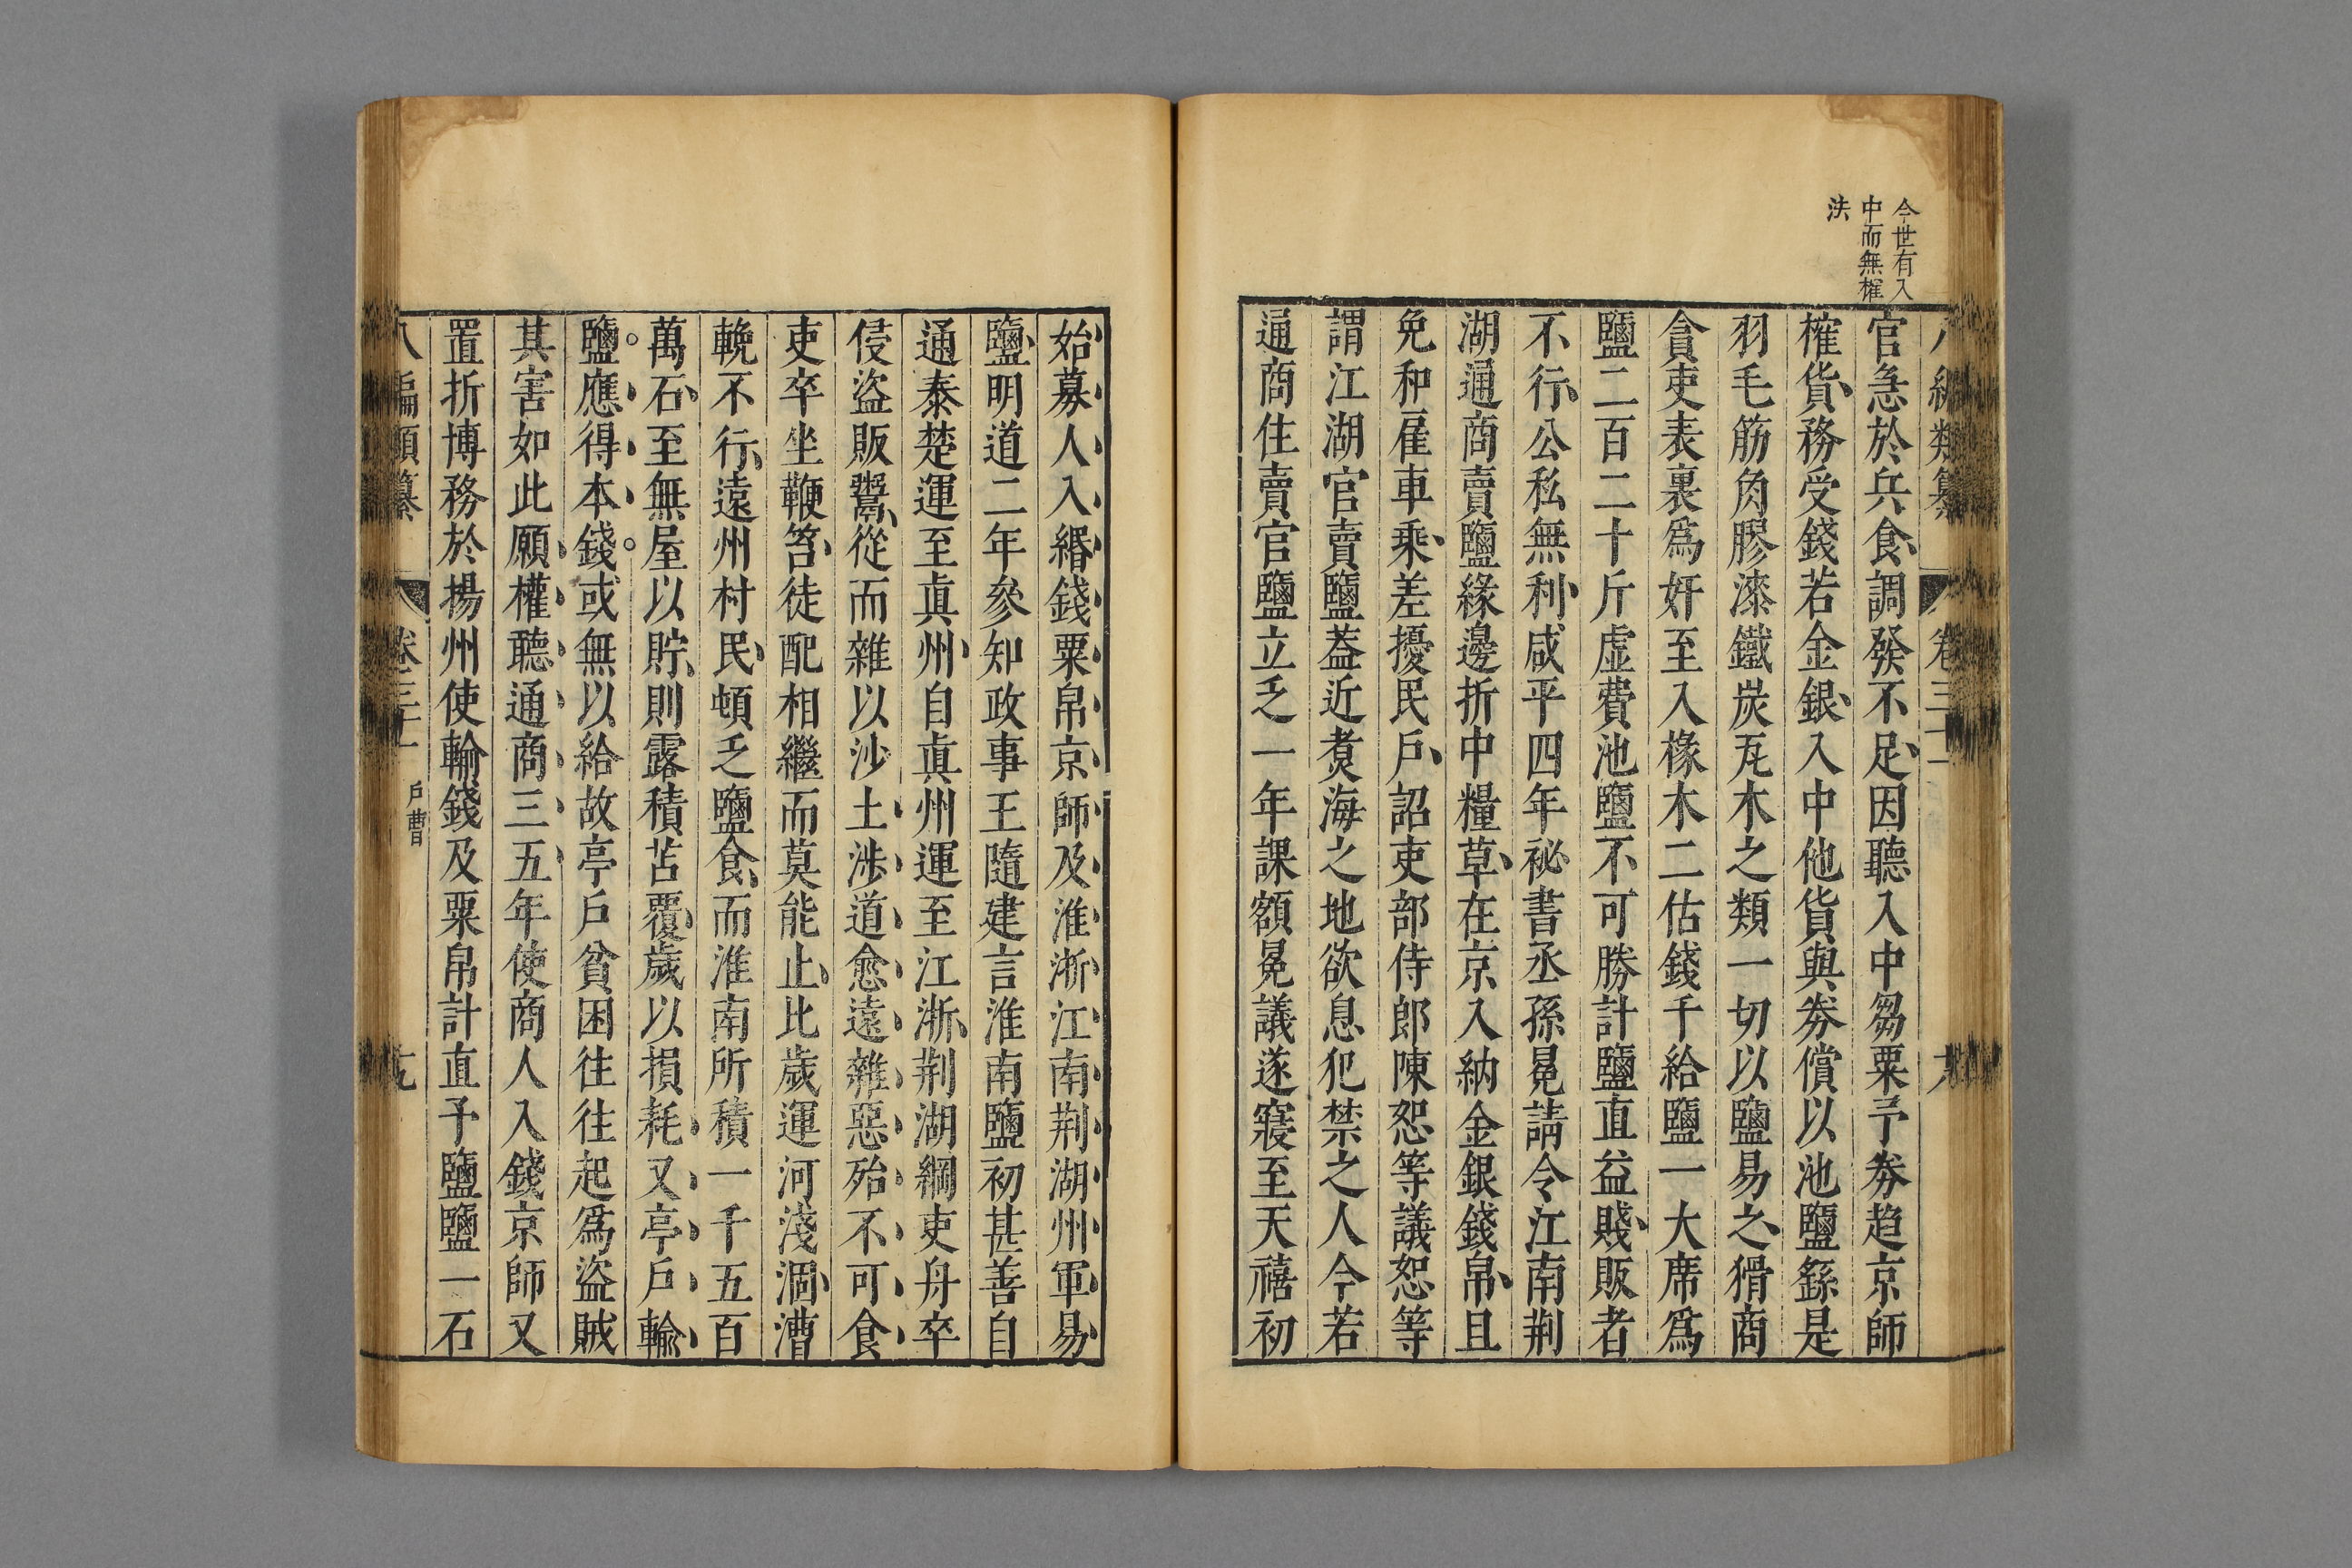 今世有入
中而無榷
法
官急於兵食調發不足因聽入中芻粟予券趋京師
榷貨務受錢若金銀入中他貨與券償以池鹽繇是
羽毛筋角膠漆鐵炭瓦木之類一切以鹽易之猾商
貪吏表裏爲奸至入椽木二估錢千給鹽一大席爲
鹽二百二十斤虛費池鹽不可勝計鹽直益賤販者
不行公私無利咸平四年祕書丞孫冕請令江南荆
湖通商賣鹽緣邊折中糧草在京入納金銀錢帛且
免和雇車乘差擾民戶詔吏部侍郎陳恕等議恕等
謂江湖官賣鹽蓋近煑海之地欲息犯禁之人今若
通商住賣官鹽立乏一年課額冕議遂寢至天禧初
始募人入緡錢粟帛京師及淮浙江南荆湖州軍易
鹽明道二年參知政事王隨建言淮南鹽初甚善自
通泰楚運至真州自真州運至江浙荆湖綱吏舟卒
侵盜販鬻從而雜以沙土涉道愈遠雜惡殆不可食
吏卒坐鞭笞徒配相繼而莫能止比歲運河淺涸漕
輓不行遠州村民頓乏鹽食而淮南所積一千五百
萬石至無屋以貯則露積苫覆歲以損耗又亭戶輸
鹽應得本錢或無以給故亭戶貧困往往起爲盜賊
其害如此願權聽通商三五年使商人入錢京師又
置折博務於揚州使輸錢及粟帛計直予鹽鹽一石
八編類纂 卷三十 戶曹 十九